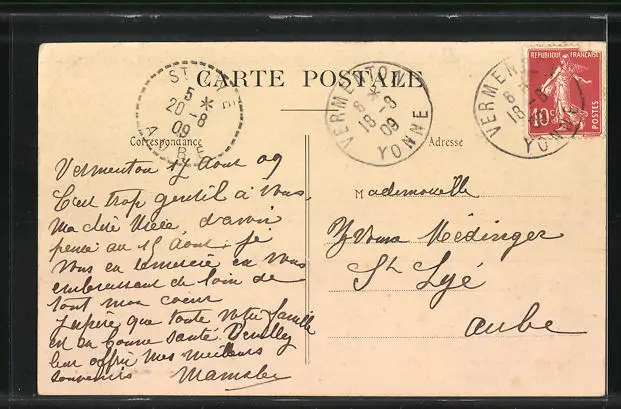 CARTE POSTALE
ST LYÉ
5 *
20 -8
09
AUBE
VERMENTON
8 *
18 -8
09
YONNE
VERMEN
8
18 -8
YONNE
REPUBLIQUE FRANÇAISE
10c
POSTES
Correspondance
Adresse
Vermenton 17 Aout 09
C'est trop gentil à vous,
ma chère d'avoir
pensé au 15 Aout. je
vous en remercie en vous
embrassant de loin de
tout mon coeur
J'espère que toute votre famille
est en bonne santé. Veuillez
leur offrir mes meilleurs
souvenirs
Mademoiselle
Yvonne Médinger
St Lyé
Aube